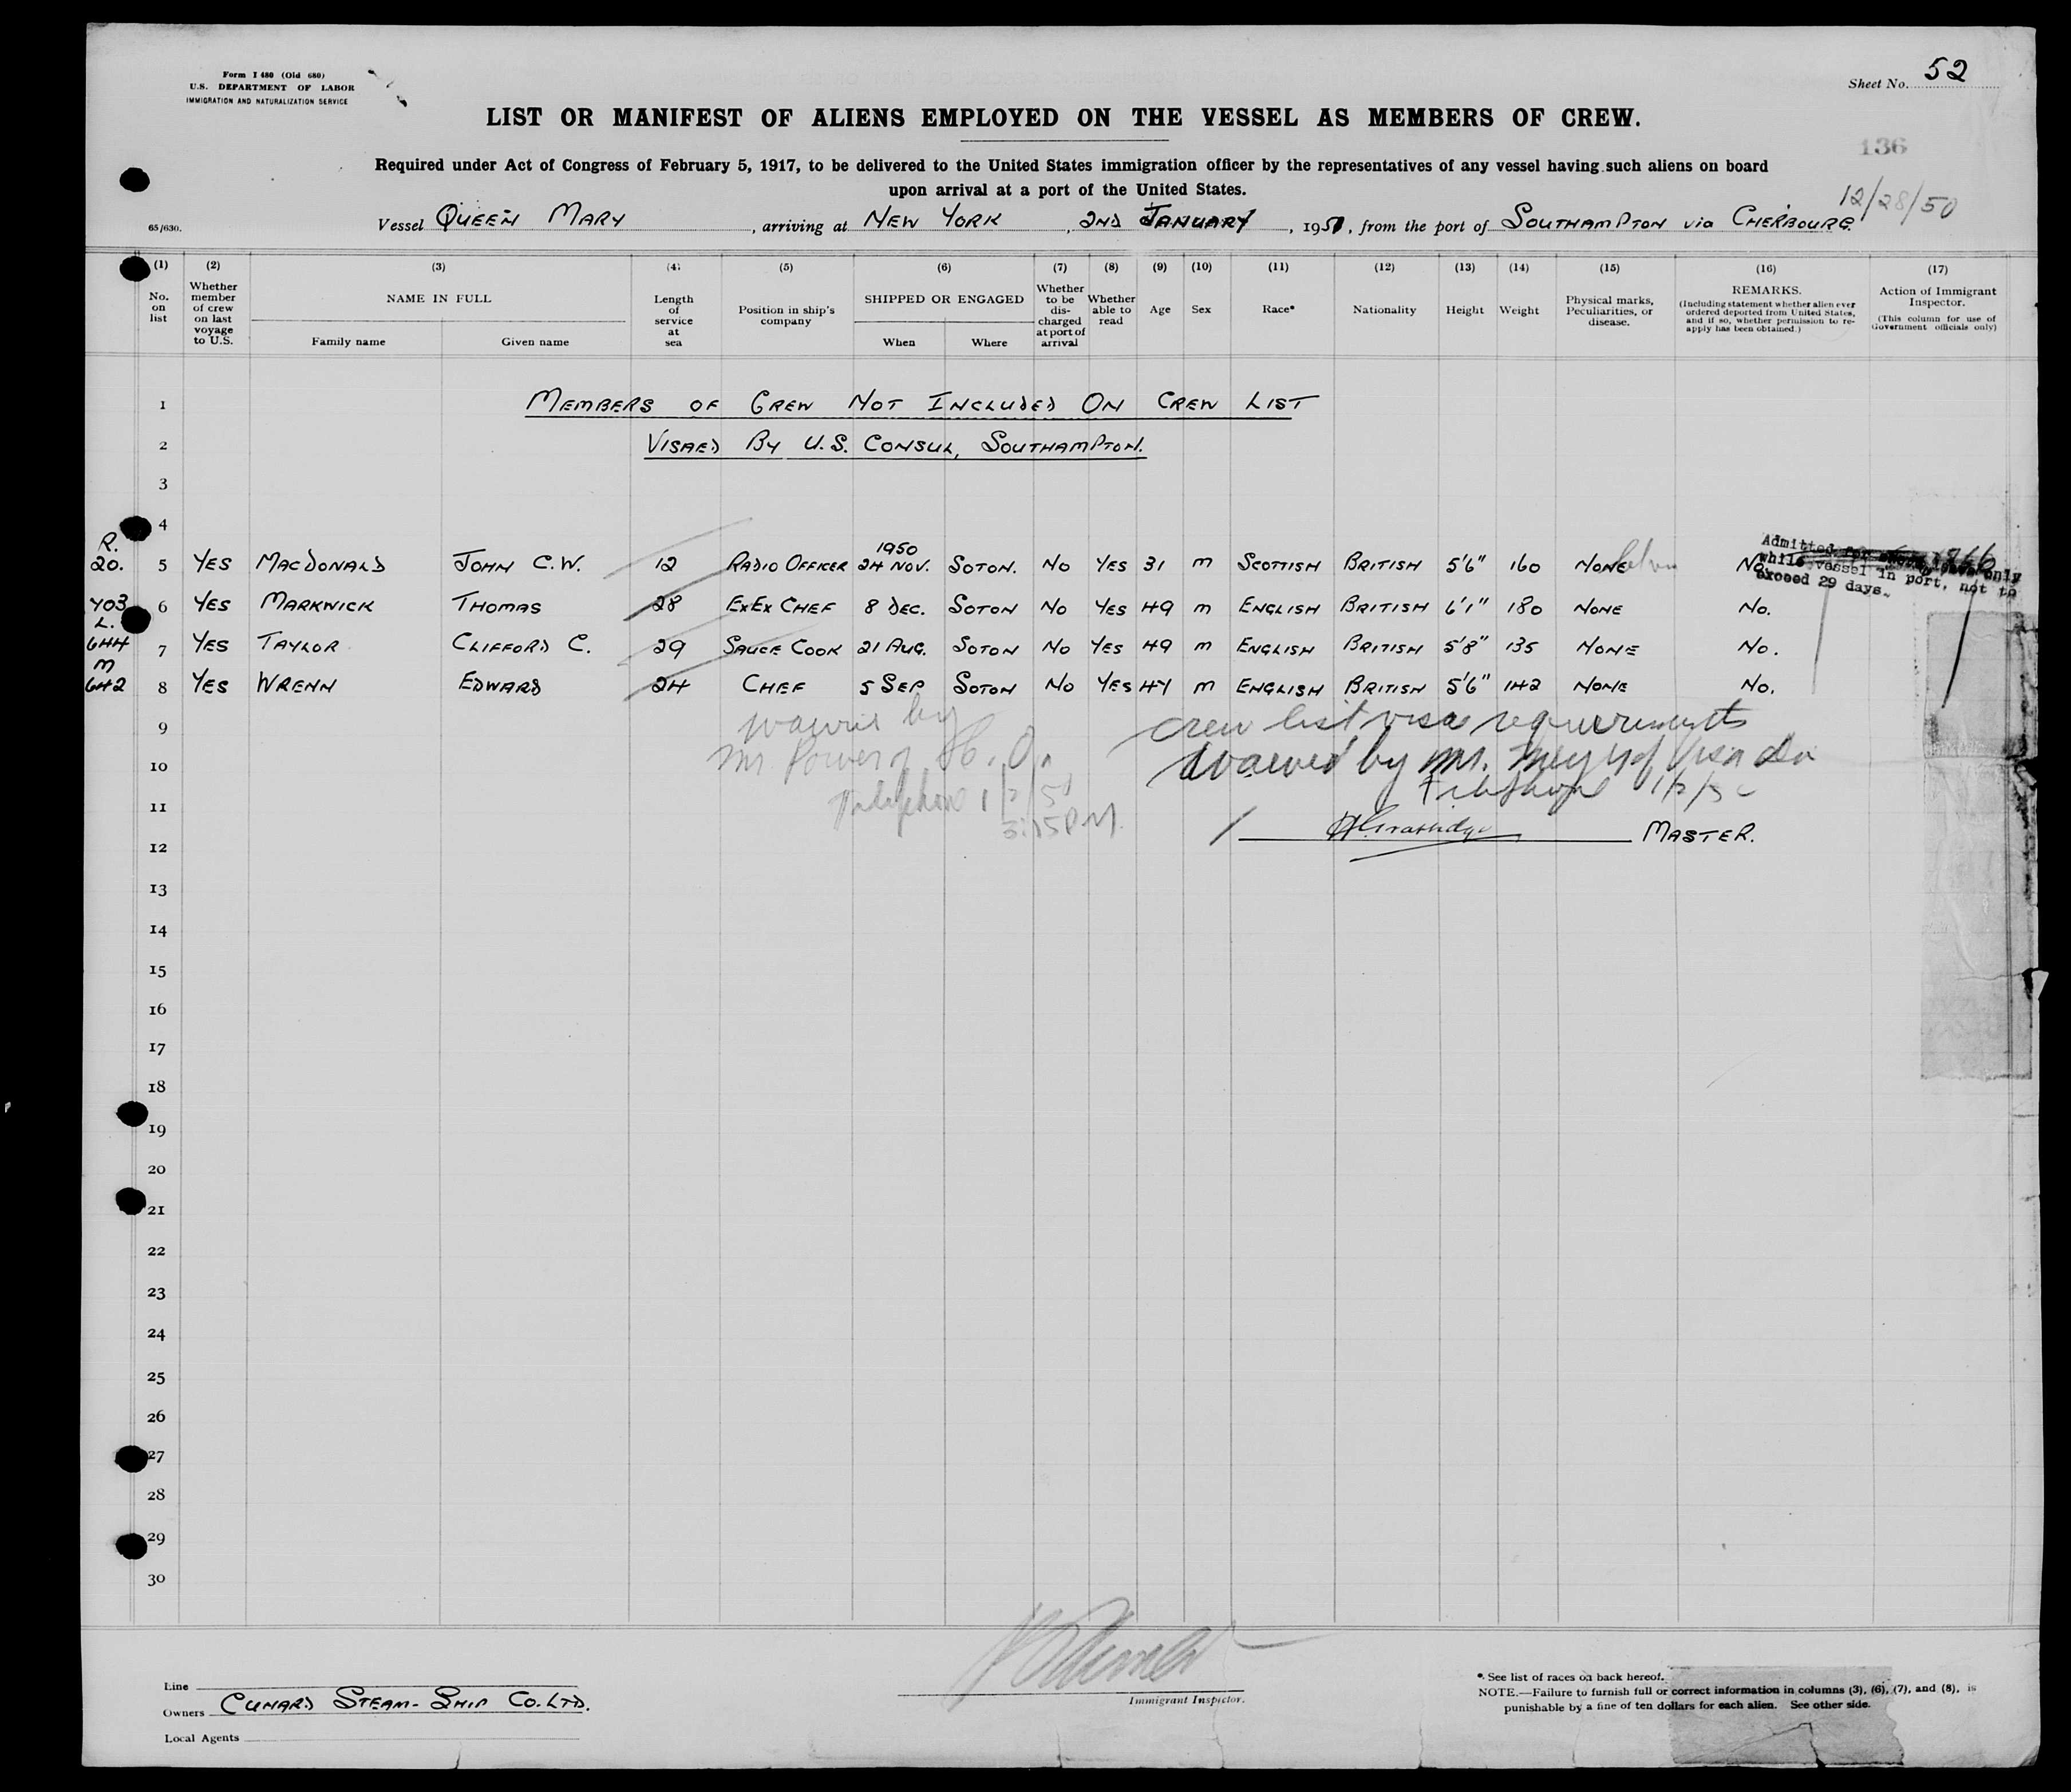 Form I 480 (Old 680)
U.S. DEPARTMENT OF LABOR
IMMIGRATION AND NATURALIZATION SERVICE
Sheet No. 52
LIST OR MANIFEST OF ALIENS EMPLOYED ON THE VESSEL AS MEMBERS OF CREW.
136
Required under Act of Congress of February 5, 1917, to be delivered to the United States immigration officer by the representatives of any vessel having such aliens on board
upon arrival at a port of the United States.
12/28/50
65/630.
Vessel QUEEN MARY, arriving at NEW YORK, 2ND JANUARY, 1951, from the port of SOUTHAMPTON via CHERBOURG.
(1) (2) (3) (4) (5) (6) (7) (8) (9) (10) (11) (12) (13) (14) (15) (16) (17)
No. on list
Whether member of crew on last voyage to U.S.
NAME IN FULL
Family name
Given name
Length of service at sea
Position in ship's company
SHIPPED OR ENGAGED
When
Where
Whether to be discharged at port of arrival
Whether able to read
Age
Sex
Race*
Nationality
Height
Weight
Physical marks, Peculiarities, or disease.
REMARKS.
(Including statement whether alien ever ordered deported from United States, and if so, whether permission to re-apply has been obtained.)
Action of Immigrant Inspector.
(This column for use of Government officials only)
1 MEMBERS OF CREW NOT INCLUDED ON CREW LIST
2 VISAED BY U.S. CONSUL, SOUTHAMPTON.
3
4
R. 20. 5 YES MACDONALD JOHN C.W. 12 RADIO OFFICER 1950 24 NOV. SOTON. NO YES 31 M SCOTTISH BRITISH 5'6" 160 NONE NO.
Admitted for only
while vessel in port, not to
exceed 29 days.
403 6 YES MARKWICK THOMAS 28 EXEX CHEF 8 DEC. SOTON NO YES 49 M ENGLISH BRITISH 6'1" 180 NONE NO.
L. 644 7 YES TAYLOR CLIFFORD C. 29 SAUCE COOK 21 AUG. SOTON NO YES 49 M ENGLISH BRITISH 5'8" 135 NONE NO.
M 642 8 YES WRENN EDWARD 24 CHEF 5 SEP SOTON NO YES 47 M ENGLISH BRITISH 5'6" 142 NONE NO.
9 by crew list visa requirements
10 Mr. waived by Mr.
11 Telephone
3:15 P.M.
12 MASTER.
13
14
15
16
17
18
19
20
21
22
23
24
25
26
27
28
29
30
Line
Owners CUNARD STEAM-SHIP CO. LTD.
Local Agents
Immigrant Inspector.
* See list of races on back hereof.
NOTE.—Failure to furnish full or correct information in columns (3), (6), (7), and (8), is
punishable by a fine of ten dollars for each alien. See other side.